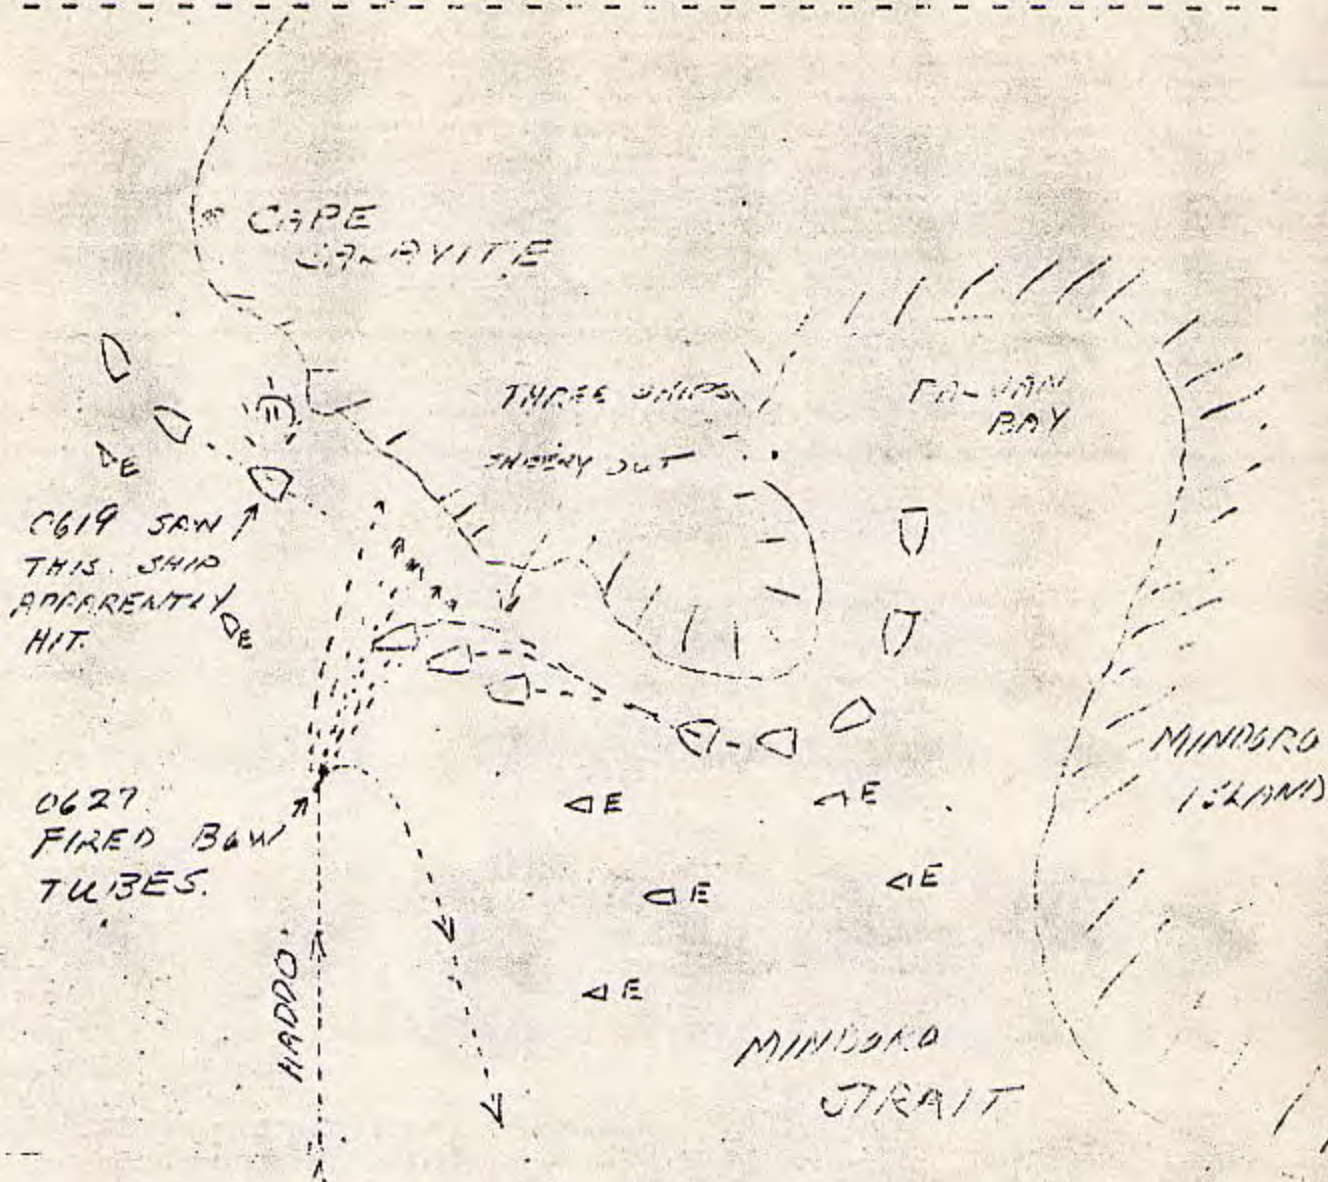 CAPE
CALAVITE
THREE SHIPS
OUT
BAY
E
0619 SAW
THIS SHIP
APPARENTLY
HIT.
E
MINDORO
ISLAND
0627
FIRED BOW
TUBES.
E
E
E
E
E
HADDO
MINDORO
STRAIT